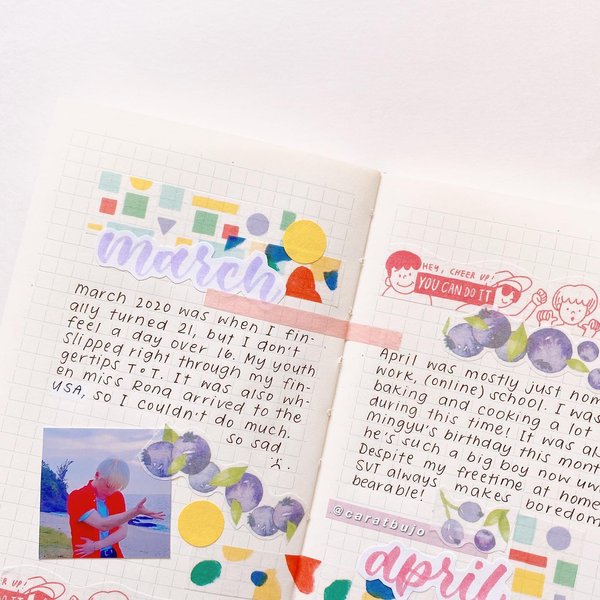 march
march 2020 was when I fin-
ally turned 21, but I don't
feel a day over 16. My youth
slipped right through my fin-
gertips T°T. It was also wh-
en miss Rona arrived to the
USA, so I couldn't do much.
So sad
HEY, CHEER UP!
YOU CAN DO IT
April was mostly just hom
work, (online) school. I was
baking and cooking a lot
during this time! It was als
mingyu's birthday this mont
he's such a big boy now uw
Despite my freetime at home
SVT always makes boredom
bearable!
@caratbujo
april
ER UP!
DO IT